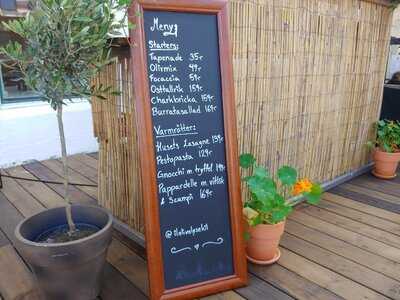 Meny
Starters:
Tapenade 35:-
Olivmix 49:-
Focaccia 59:-
Osttallrik 159:-
Charkbricka 159:-
Burratasallad 169:-
Varmrätter:
Husets Lasagne 139:-
Pestopasta 129:-
Gnocchi m tryffel 149:-
Pappardelle m vitlök
& Scampi 169:-